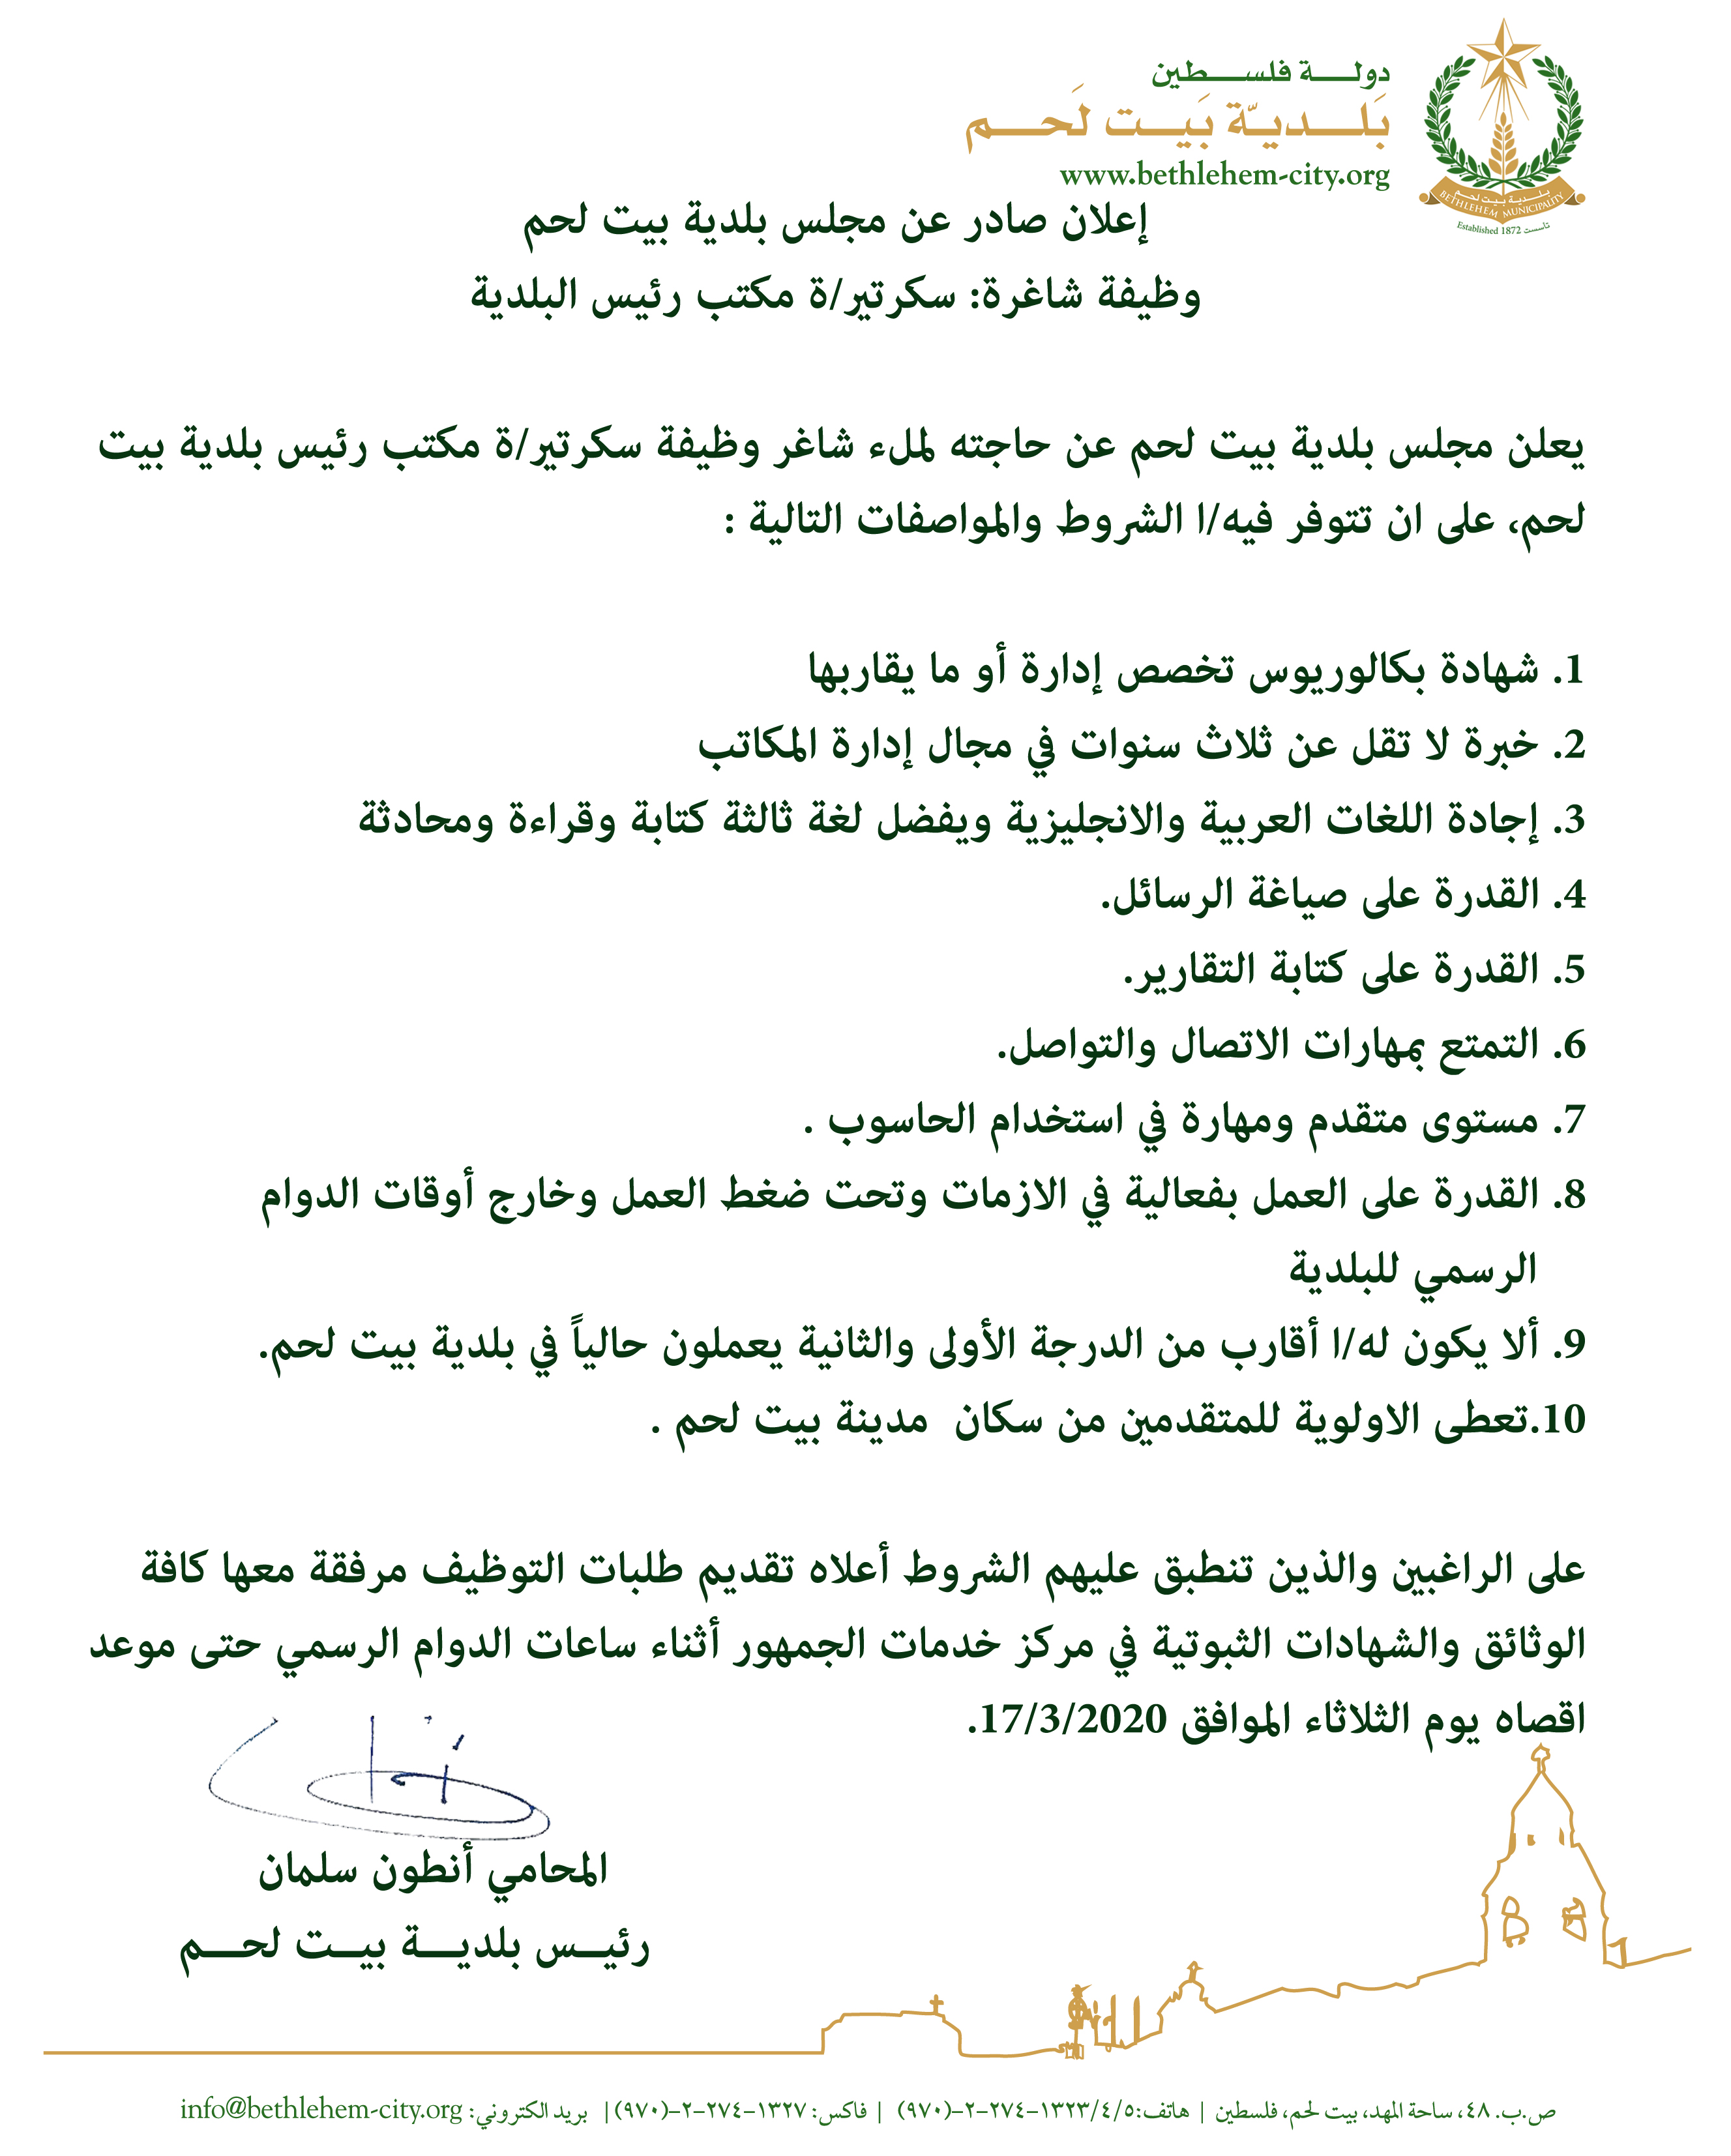 دولة فلسطين
بَلديّة بَيت لَحم
www.bethlehem-city.org
بلدية بيت لحم
BETHLEHEM MUNICIPALITY
Established 1872 تأسست
إعلان صادر عن مجلس بلدية بيت لحم
وظيفة شاغرة: سكرتير/ة مكتب رئيس البلدية
يعلن مجلس بلدية بيت لحم عن حاجته لملء شاغر وظيفة سكرتير/ة مكتب رئيس بلدية بيت
لحم، على ان تتوفر فيه/ا الشروط والمواصفات التالية :
1. شهادة بكالوريوس تخصص إدارة أو ما يقاربها
2. خبرة لا تقل عن ثلاث سنوات في مجال إدارة المكاتب
3. إجادة اللغات العربية والانجليزية ويفضل لغة ثالثة كتابة وقراءة ومحادثة
4. القدرة على صياغة الرسائل.
5. القدرة على كتابة التقارير.
6. التمتع بمهارات الاتصال والتواصل.
7. مستوى متقدم ومهارة في استخدام الحاسوب .
8. القدرة على العمل بفعالية في الازمات وتحت ضغط العمل وخارج أوقات الدوام
الرسمي للبلدية
9. ألا يكون له/ا أقارب من الدرجة الأولى والثانية يعملون حالياً في بلدية بيت لحم.
10.تعطى الاولوية للمتقدمين من سكان مدينة بيت لحم .
على الراغبين والذين تنطبق عليهم الشروط أعلاه تقديم طلبات التوظيف مرفقة معها كافة
الوثائق والشهادات الثبوتية في مركز خدمات الجمهور أثناء ساعات الدوام الرسمي حتى موعد
اقصاه يوم الثلاثاء الموافق 17/3/2020.
المحامي أنطون سلمان
رئيس بلدية بيت لحم
ص.ب. ٤٨، ساحة المهد، بيت لحم، فلسطين | هاتف:٥/٤/١٣٢٣-٢٧٤-٢-(٩٧٠) | فاكس: ١٣٢٧-٢٧٤-٢-(٩٧٠) | بريد الكتروني: info@bethlehem-city.org